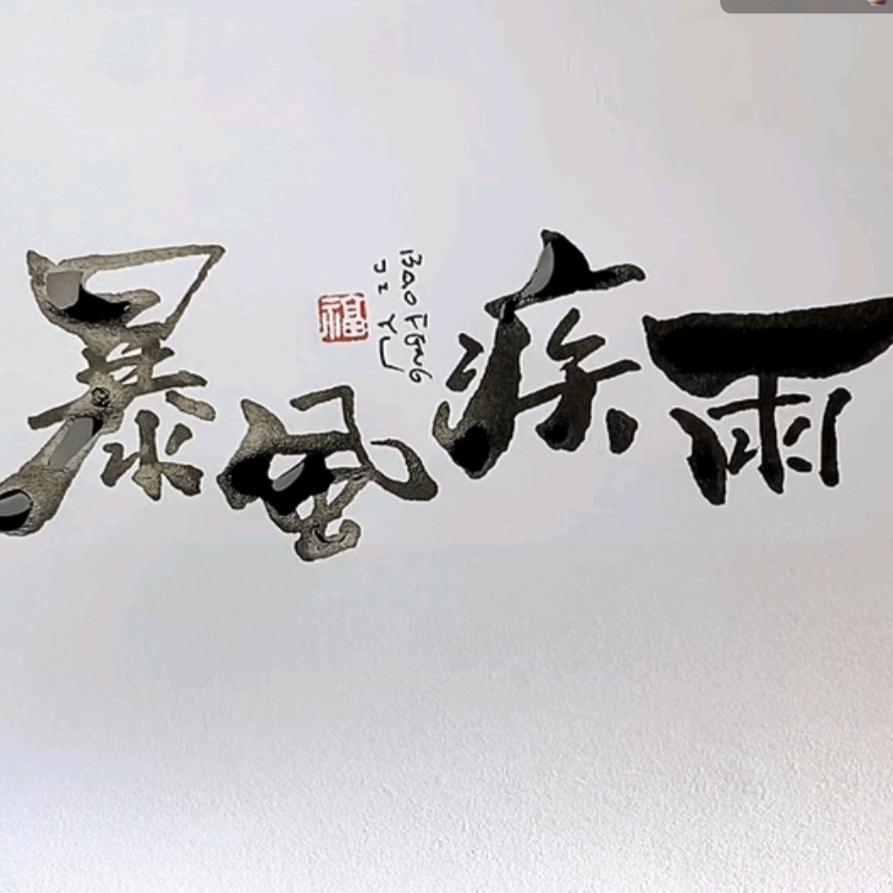 暴風疾雨
Bao Feng
Ji Yu
福